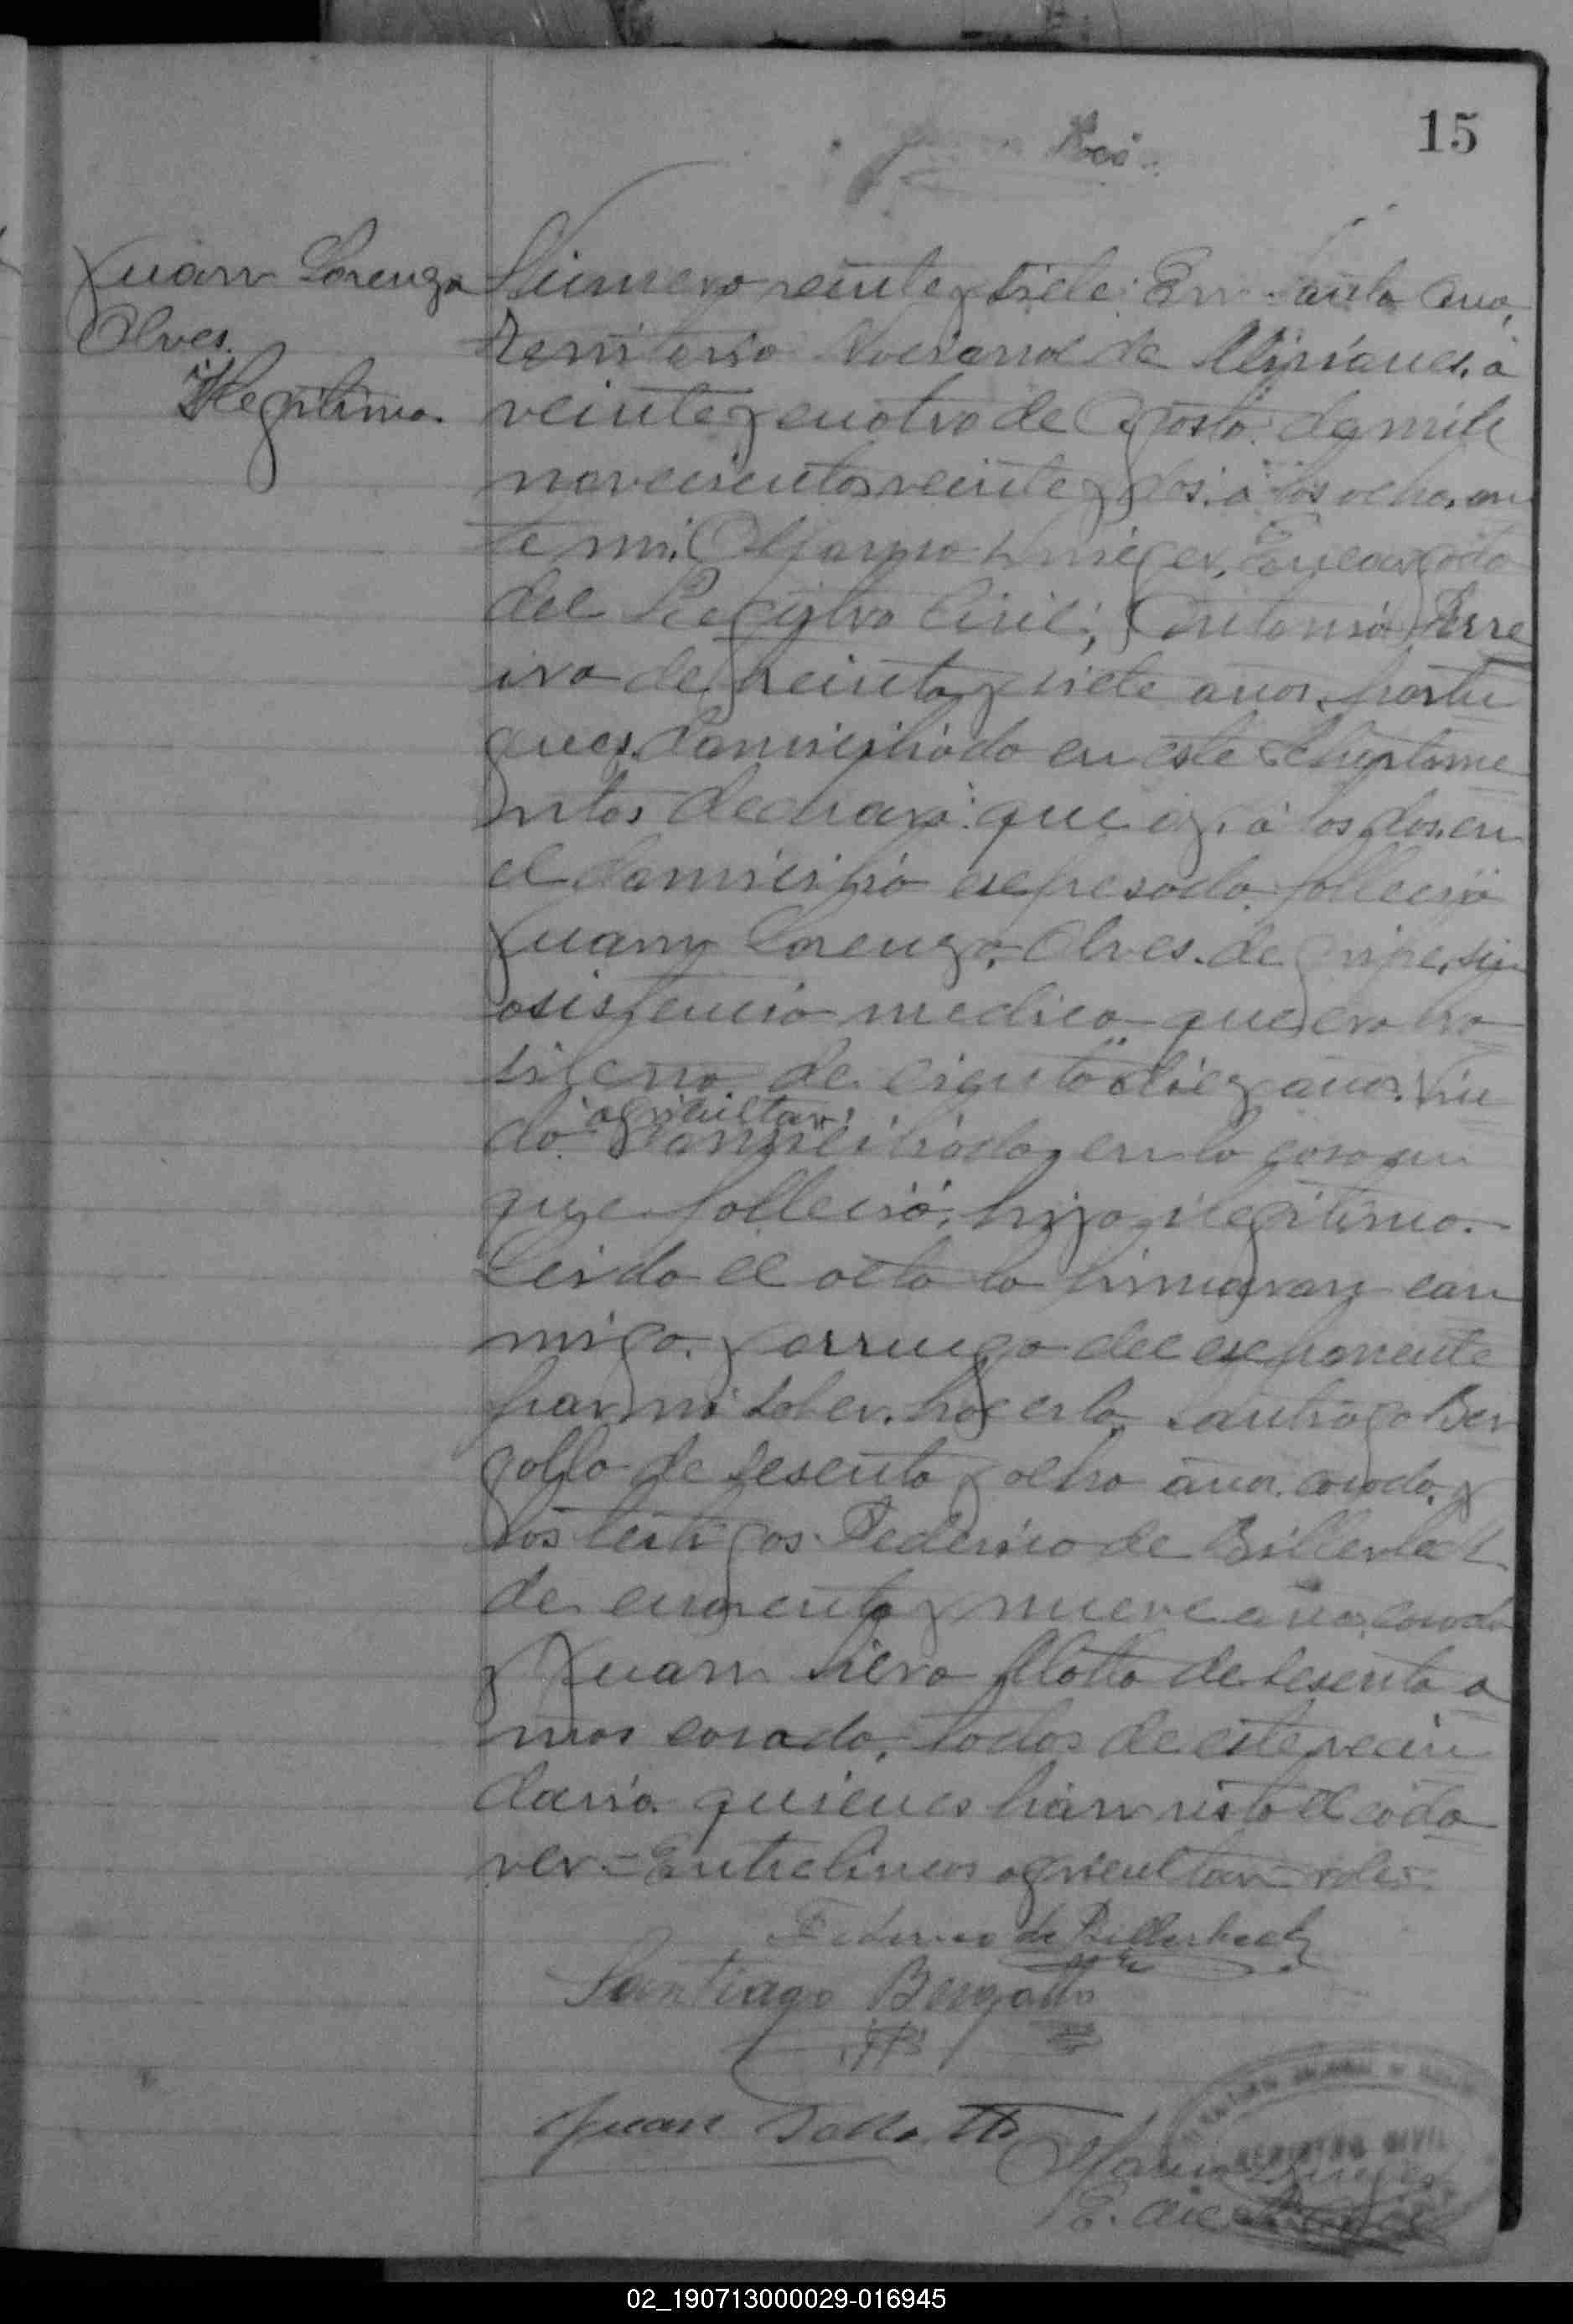 15
Juan Lorenzo
Alves.
Ilegitimo.
Numero veinte y siete: En Santa Ana,
Territorio Nacional de Misiones, á
veinte y cuatro de Agosto de mil
novecientos veinte y dos, á las ocho, an
te mi, Encargado
del Registro Civil; Antonio Ferre
ira de treinta y siete años, portu
gues, domiciliado en este Departame
nto, declaró: que oy, á las dos, en
el domicilio expresado, falleció
Juan Lorenzo, Alves, de gripe, sin
asistencia medica que era bra
silero, de ciento diez años, viu
do, agricultor, domiciliado, en la casa en
que falleció, hijo ilegitimo.
Leida el acta la firmaron con
migo, y a ruego del exponente
por no saber hacerlo, Santiago Ber
gallo de sesenta y ocho años, casado, y
los testigos Federico de Billerbeck
de cincuenta y nueve años, casado
y Juan de sesenta a
ños casado, todos de este vecin
dario quienes han visto el cada
ver = Entrelineas agricultor vale =
Federico de Billerbeck
Santiago Bergallo
Juan
REGISTRO CIVIL
02_190713000029-016945